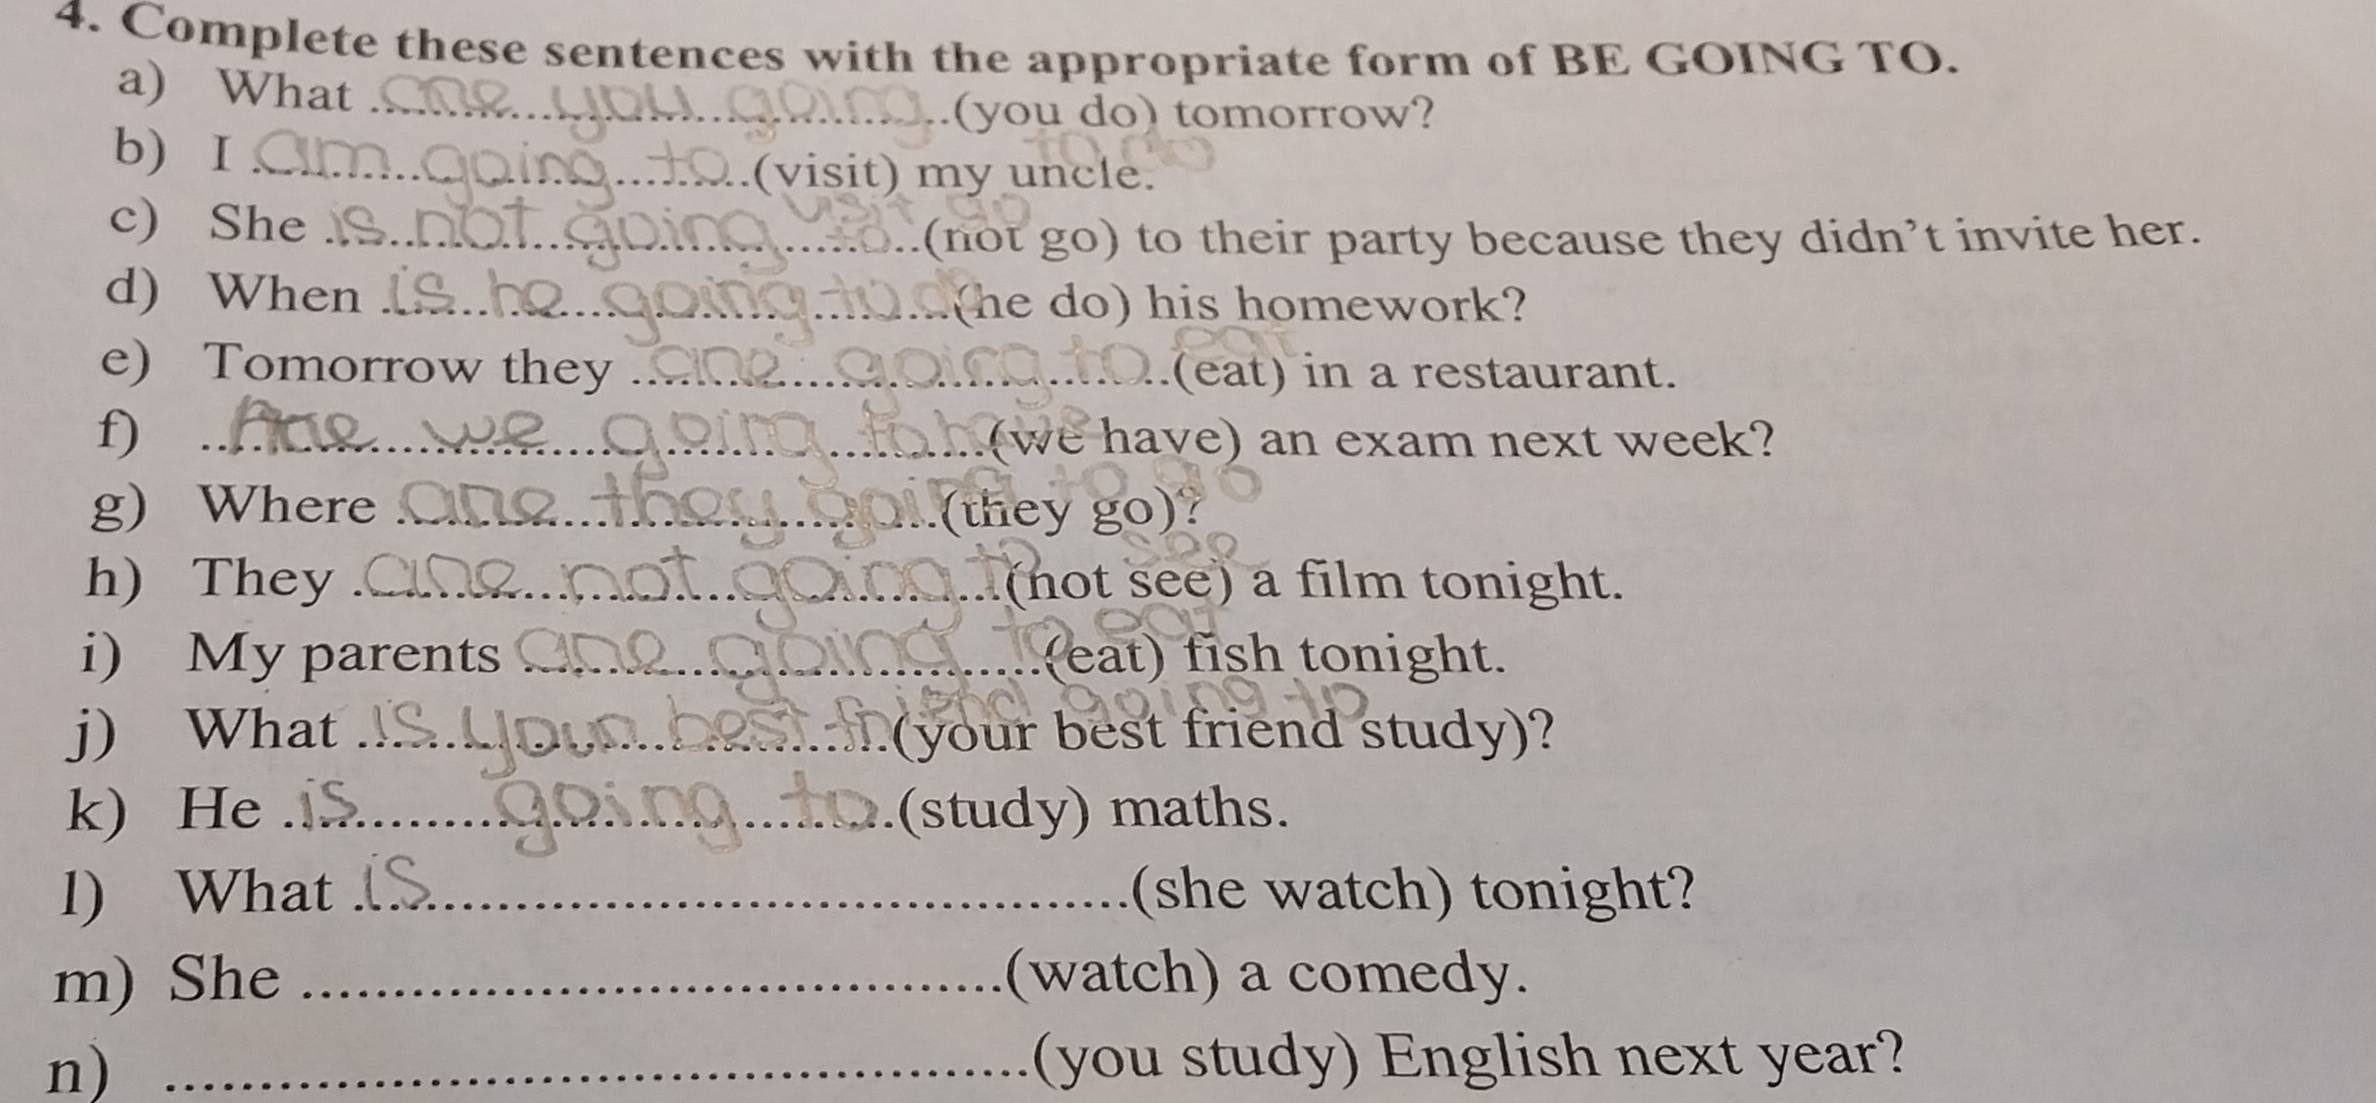 4. Complete these sentences with the appropriate form of BE GOING TO.
a) What are you going (you do) tomorrow?
to do
b) I am going to (visit) my uncle.
visit go
c) She is not going to (not go) to their party because they didn't invite her.
d) When is he going to do (he do) his homework?
eat
e) Tomorrow they are going to (eat) in a restaurant.
f) Are we going to have (we have) an exam next week?
to go
g) Where are they going (they go)?
see
h) They are not going to (not see) a film tonight.
to eat
i) My parents are going (eat) fish tonight.
friend going to
j) What is your best fri (your best friend study)?
k) He is going to (study) maths.
l) What is (she watch) tonight?
m) She (watch) a comedy.
n) (you study) English next year?